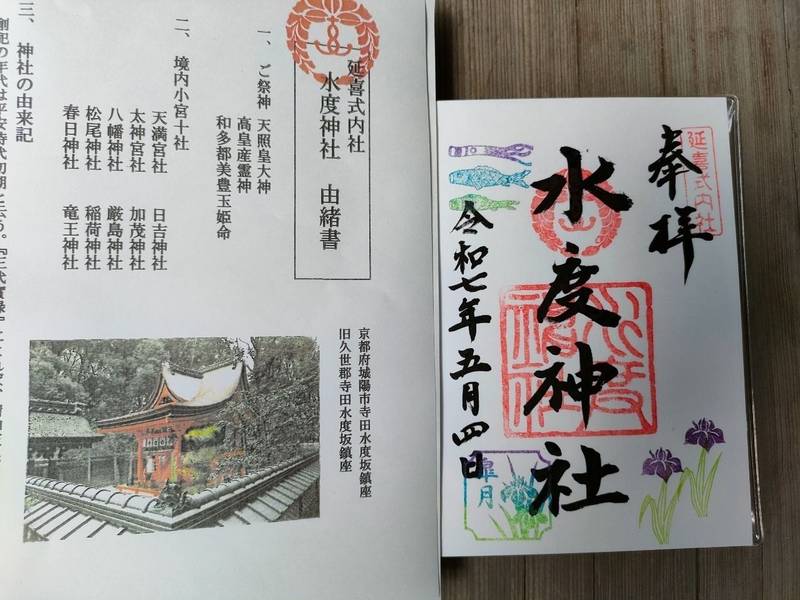 延喜式内社
水度神社 由緒書
一、ご祭神 天照皇大神
高皇産霊神
和多都美豊玉姫命
二、境内小宮十社
天満宮社 日吉神社
太神宮社 加茂神社
八幡神社 厳島神社
松尾神社 稲荷神社
春日神社 竜王神社
三、神社の由来記
創祀の年代は平安時代初期と云う。『三代實録』
京都府城陽市寺田水度坂鎮座
旧久世郡寺田水度坂鎮座
奉拝
延喜式内社
水度神社
令和七年五月四日
皐月